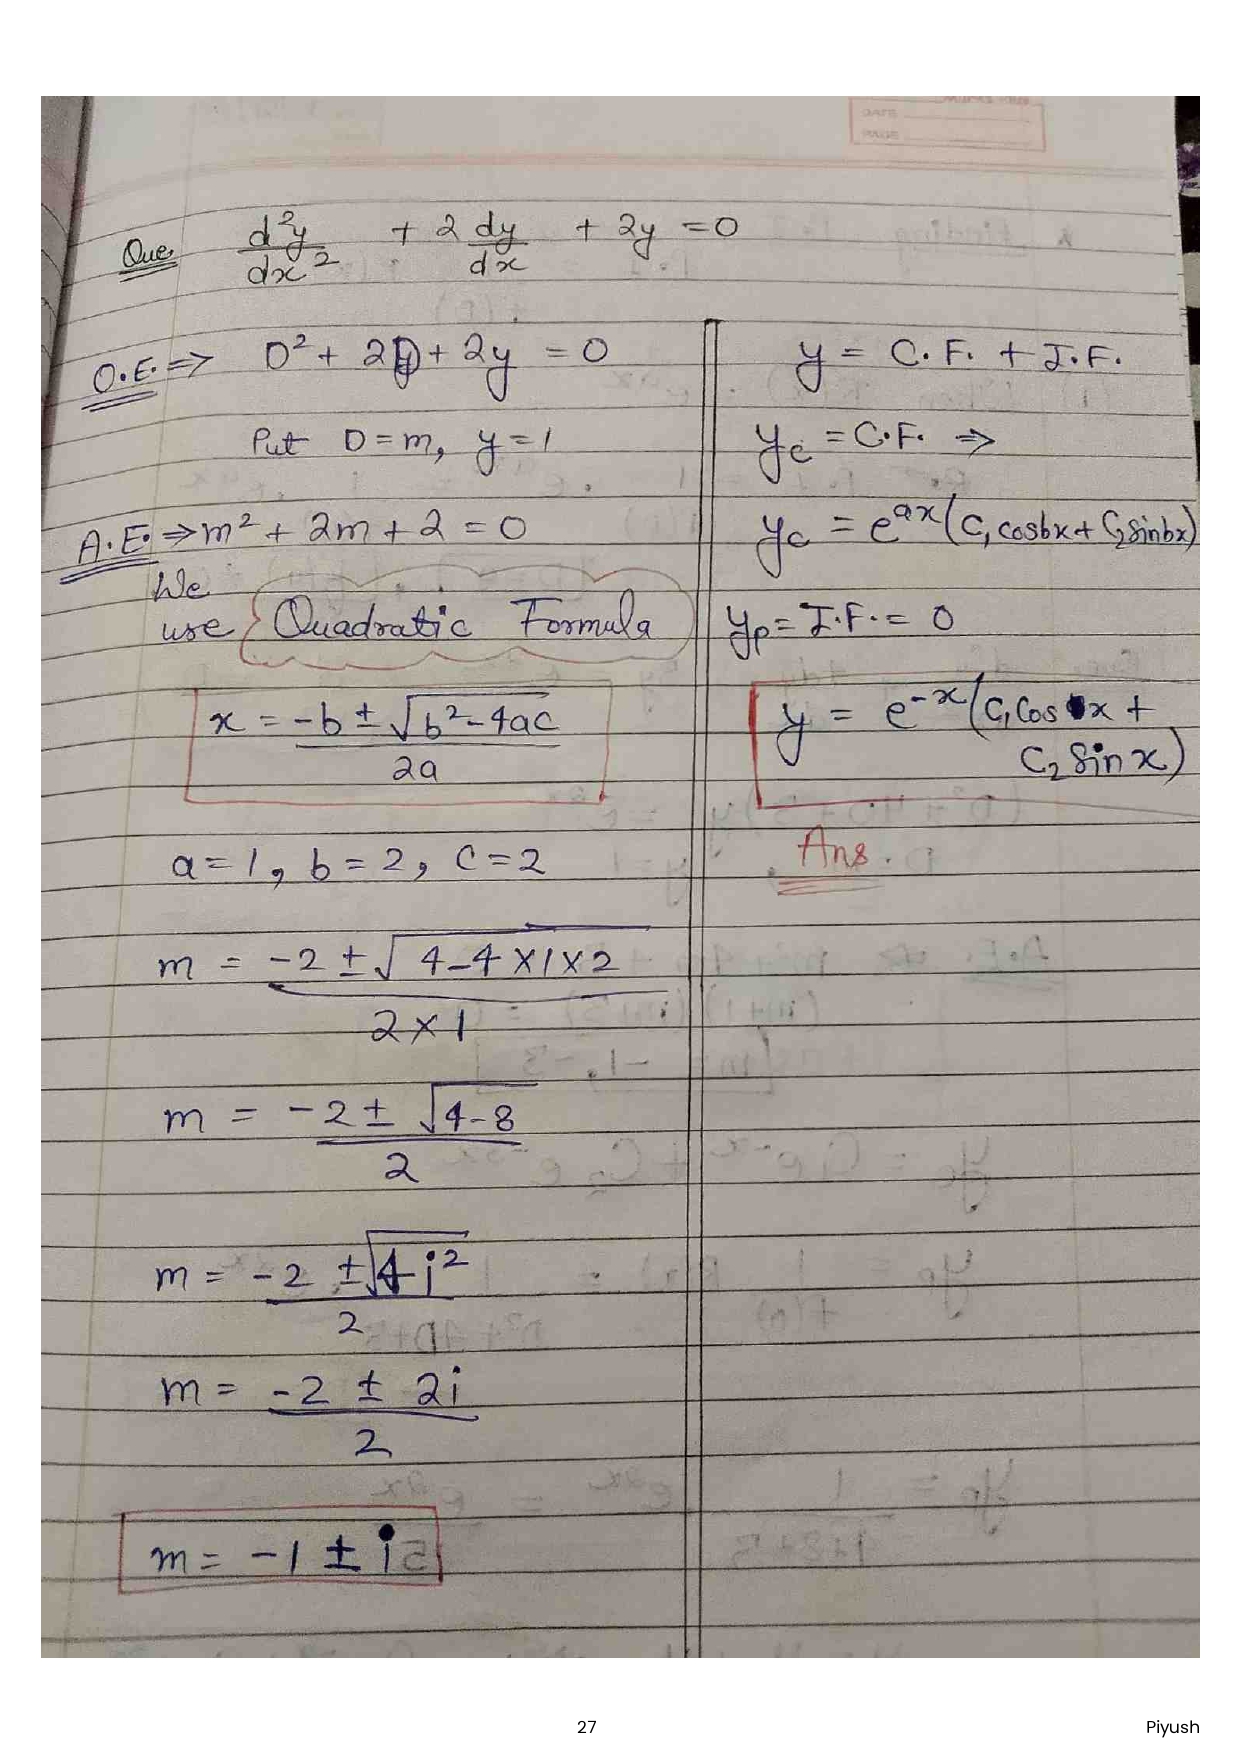 Que. d²y/dx² + 2 dy/dx + 2y = 0
O.E. ⇒ D² + 2D + 2y = 0
Put D = m, y = 1
A.E. ⇒ m² + 2m + 2 = 0
We
use Quadratic Formula
x = -b ± √b² - 4ac / 2a
a = 1, b = 2, c = 2
m = -2 ± √4 - 4 × 1 × 2 / 2 × 1
m = -2 ± √4 - 8 / 2
m = -2 ± √4i² / 2
m = -2 ± 2i / 2
m = -1 ± i
y = C.F. + I.F.
yc = C.F. ⇒
yc = e^ax (C₁ cosbx + C₂ sinbx)
yp = I.F. = 0
y = e^-x (C₁ Cos x +
C₂ Sin x)
Ans.
27
Piyush